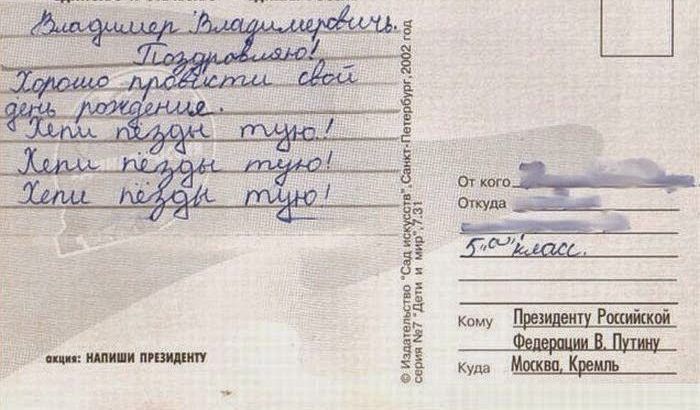 Владимер Владимеровичь.
Поздровляю!
Хорошо провисти свой
день рождения.
Хепи пёзды тую!
Хепи пёзды тую!
Хепи пёзды тую!
акция: НАПИШИ ПРЕЗИДЕНТУ
© Издательство "Сад искусств", Санкт-Петербург, 2002 год
серия №7 "Дети и мир", 7.31
От кого
Откуда
5 "а" класс.
Кому Президенту Российской
Федерации В. Путину
Куда Москва, Кремль